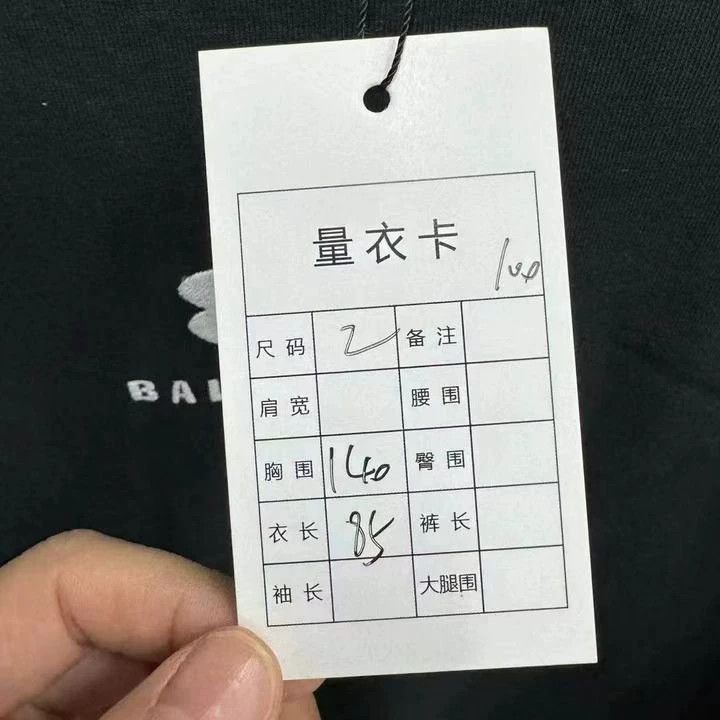 量衣卡
100
尺码 2 备注
肩宽 腰围
胸围 140 臀围
衣长 85 裤长
袖长 大腿围
BAL